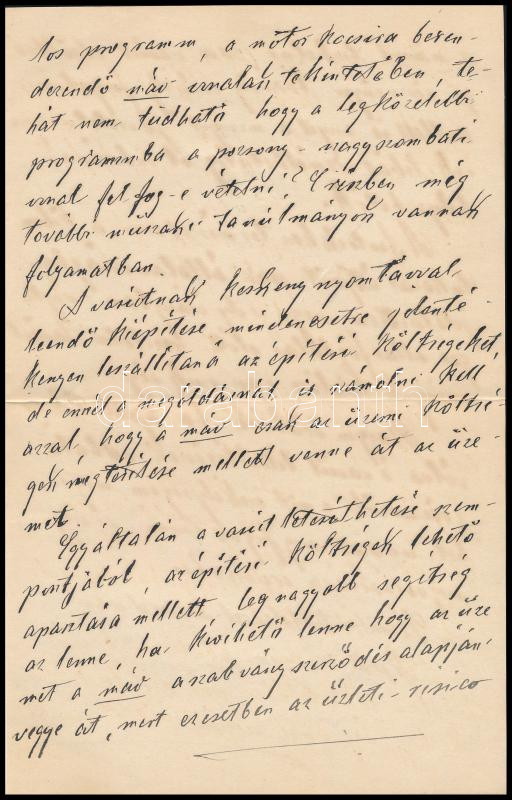 tos programm, a mótor kocsira beren-
dezendő máv vonalak tekintetében, te-
hát nem tudható hogy a legközelebbi
programmba a pozsony-nagyszombati
vonal fel fog-e vétetni? E részben még
további müszaki tanúlmányok vannak
folyamatban.
A vasútnak keskenynyomtávval
leendő kiépitése mindenesetre jelenté-
kenyen leszállítaná az építési költségeket,
de ennél a megoldásnál is számolni kell
azzal, hogy a máv csak az üzemi költsé-
gek megtérítése mellett venne át az üze-
met.
Egyáltalán a vasút létesíthetése szem-
pontjából, az építési költségek lehető
apasztása mellett legnagyobb segítség
az lenne, ha kivihető lenne hogy az üze
met a máv a szabványszerződés alapján
vegye át, mert ez esetben az üzleti-risico
darabanth